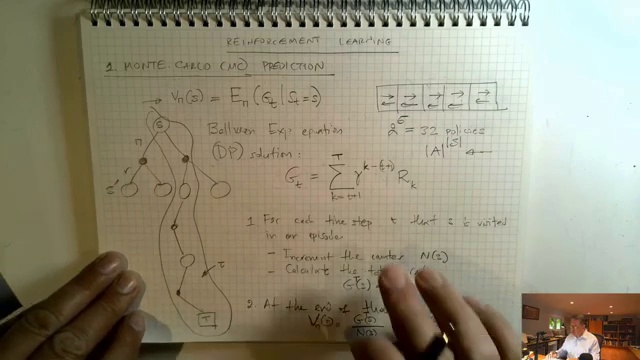 REINFORCEMENT LEARNING
1. MONTE-CARLO (MC) PREDICTION
→ Vπ(s) = Eπ(Gt | St=s)
Bellman Exp. equation
(DP) solution:
2^5 = 32 policies
|A|^|S| ←
Gt = Σ_{k=t+1}^{T} γ^{k-(t+1)} R_k
S
π
s'
r
T
1 For each time step t that s is visited
in an episode
- Increment the counter N(s)
- Calculate the
2. At the end of
G(s)
N(s)